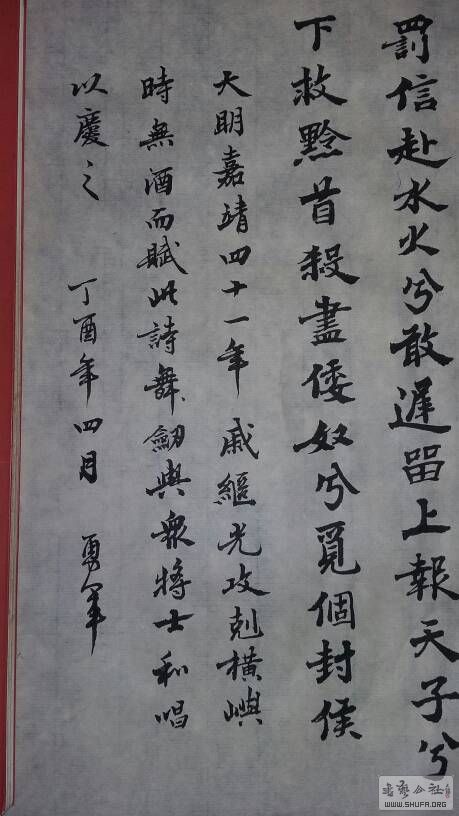 罰信赴水火兮敢遲留上報天子兮
下救黔首殺盡倭奴兮覓個封侯
大明嘉靖四十一年戚繼光攻剋橫嶼
時無酒而賦此詩舞劒與眾將士和唱
以慶之 丁酉年四月 勇军
書法公社
WWW.SHUFA.ORG